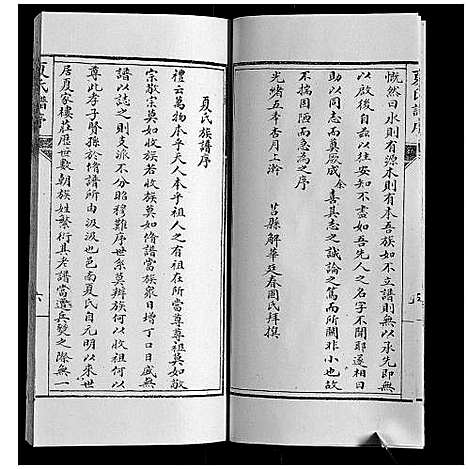 夏氏譜序
慨然曰水則有源木則有本吾族如不立譜則無以承先即無
以啟後自兹以往安知不盡如吾先人之名字不聞耶遂相日
助以同志而奠厥成余喜其志之誠論之篤而所關非小也故
不揣固陋而急為之序
光緒五年杏月上澣
莒縣解華廷春圃氏拜撰
夏氏族譜序
禮云萬物本乎天人本乎祖人之有祖在所當尊尊祖莫如敬
宗敬宗莫如收族若收族莫如脩譜當族衆日增丁口日盛無
譜以誌之則支派不分昭穆難序世系莫辨族何以收祖何以
尊此孝子賢孫於脩譜所由汲汲也邑南夏氏自元明以來世
居夏家樓莊歷世數朝族姓繁衍其老譜當遭兵燹之際無一
夏氏譜序
六